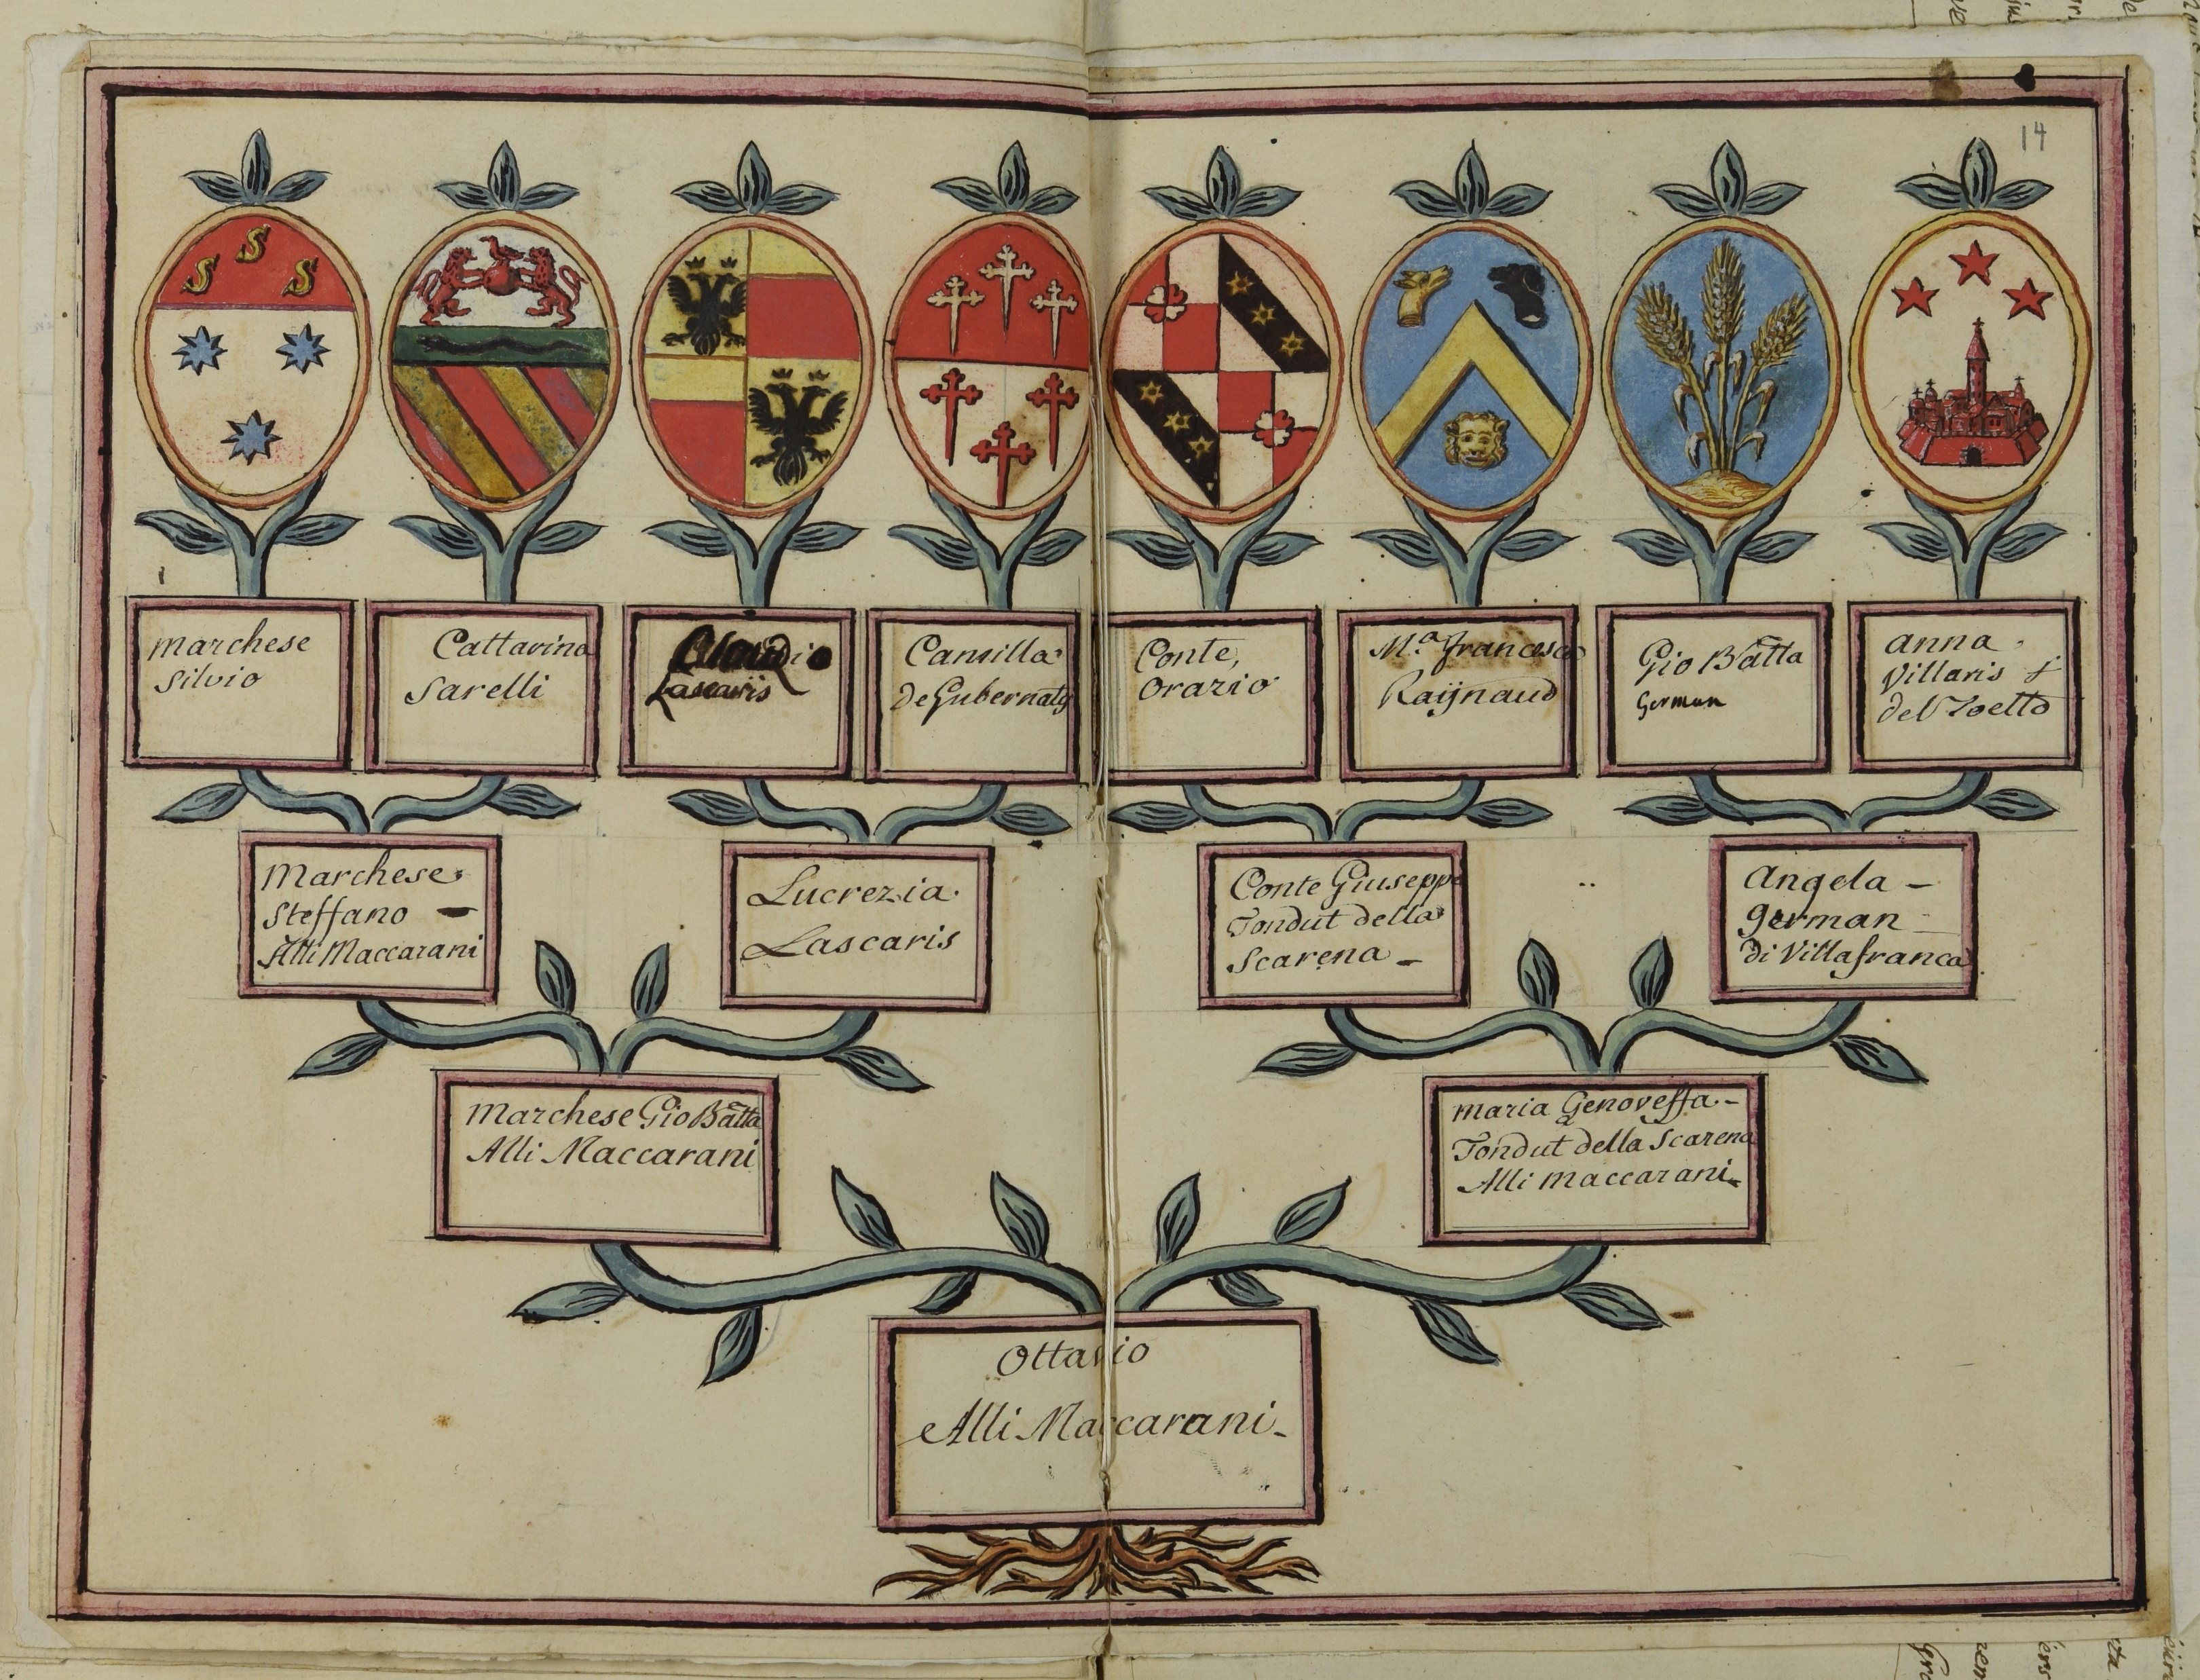 14
S S S
Marchese
Silvio
Cattarina
Sarelli
Claudio
Lascaris
Camilla
de Gubernatis
Conte
Orazio
M.ª Francesca
Raÿnaud
Gio Batta
German
Anna
Villaris
del Zoetto
Marchese
Steffano —
Alli Maccarani
Lucrezia
Lascaris
Conte Giuseppe
Tondut della
Scarena —
Angela —
German
di Villafranca
Marchese Gio Batta
Alli Maccarani
Maria Genoveffa —
Tondut della Scarena
Alli Maccarani —
Ottavio
Alli Maccarani —